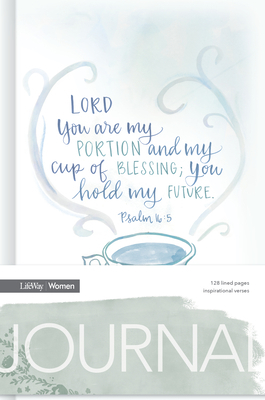 LORD
You are my
PORTION and my
cup of BLESSING; You
hold my FUTURE.
Psalm 16:5
LifeWay | Women
128 lined pages
inspirational verses
JOURNAL